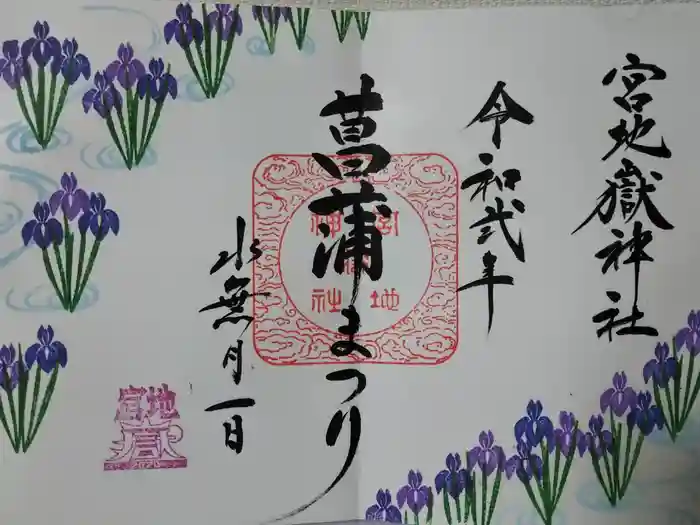 宮地嶽神社
令和弐年
菖蒲まつり
水無月一日
宮地嶽神社
宮地嶽